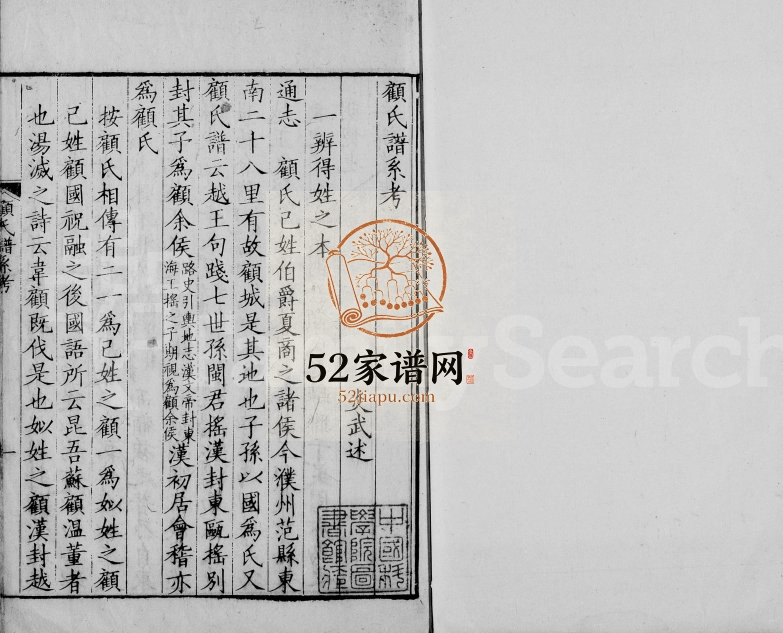 顧氏譜系考
武述
一辨得姓之本
通志　顧氏己姓伯爵夏商之諸侯今濮州范縣東
南二十八里有故顧城是其地也子孫以國爲氏又
顧氏譜云越王句踐七世孫閩君搖漢封東甌搖别
封其子爲顧余侯路史引輿地志漢文帝封東海王搖之子期視爲顧余侯漢初居會稽亦
爲顧氏
按顧氏相傳有二一爲己姓之顧一爲姒姓之顧
己姓顧國祝融之後國語所云昆吾蘇顧温董者
也湯滅之詩云韋顧既伐是也姒姓之顧漢封越
顧氏譜系考
一
中國科學院圖書館藏
52家谱网
52jiapu.com
Search